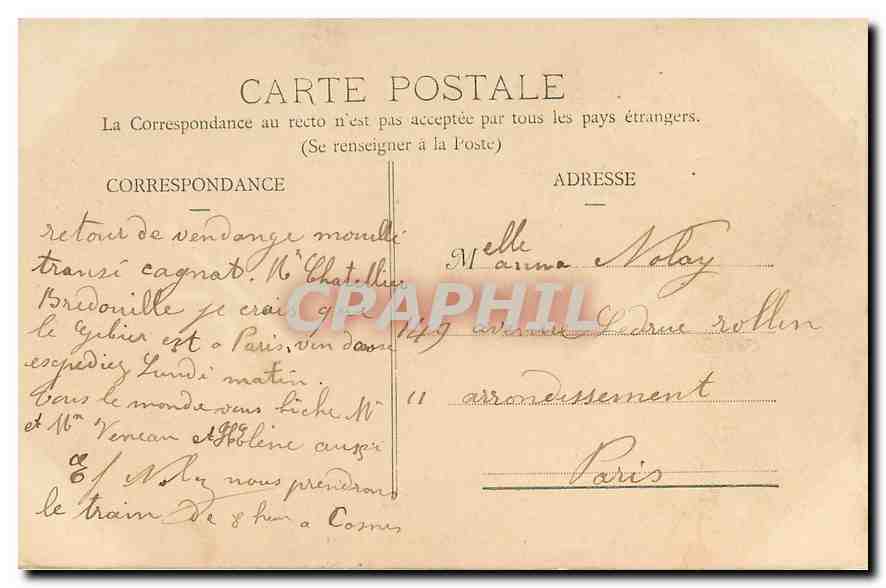 CARTE POSTALE
La Correspondance au recto n'est pas acceptée par tous les pays étrangers.
(Se renseigner à la Poste)
CORRESPONDANCE
retour de vendange mouillé
transi cagnat. Mr Chatellier
Bredouille je crois que
le Gebier est a Paris, vendange
expediez Lundi matin.
tous le monde vous biche Mr
et Mm Veneau et Hélène aussi
Ef Nolay nous prendrons
le train de 8 heu a Cosnes
ADRESSE
Melle anna Nolay
149 avenue Ledrue rollin
11 arrondissement
Paris
CPAPHIL